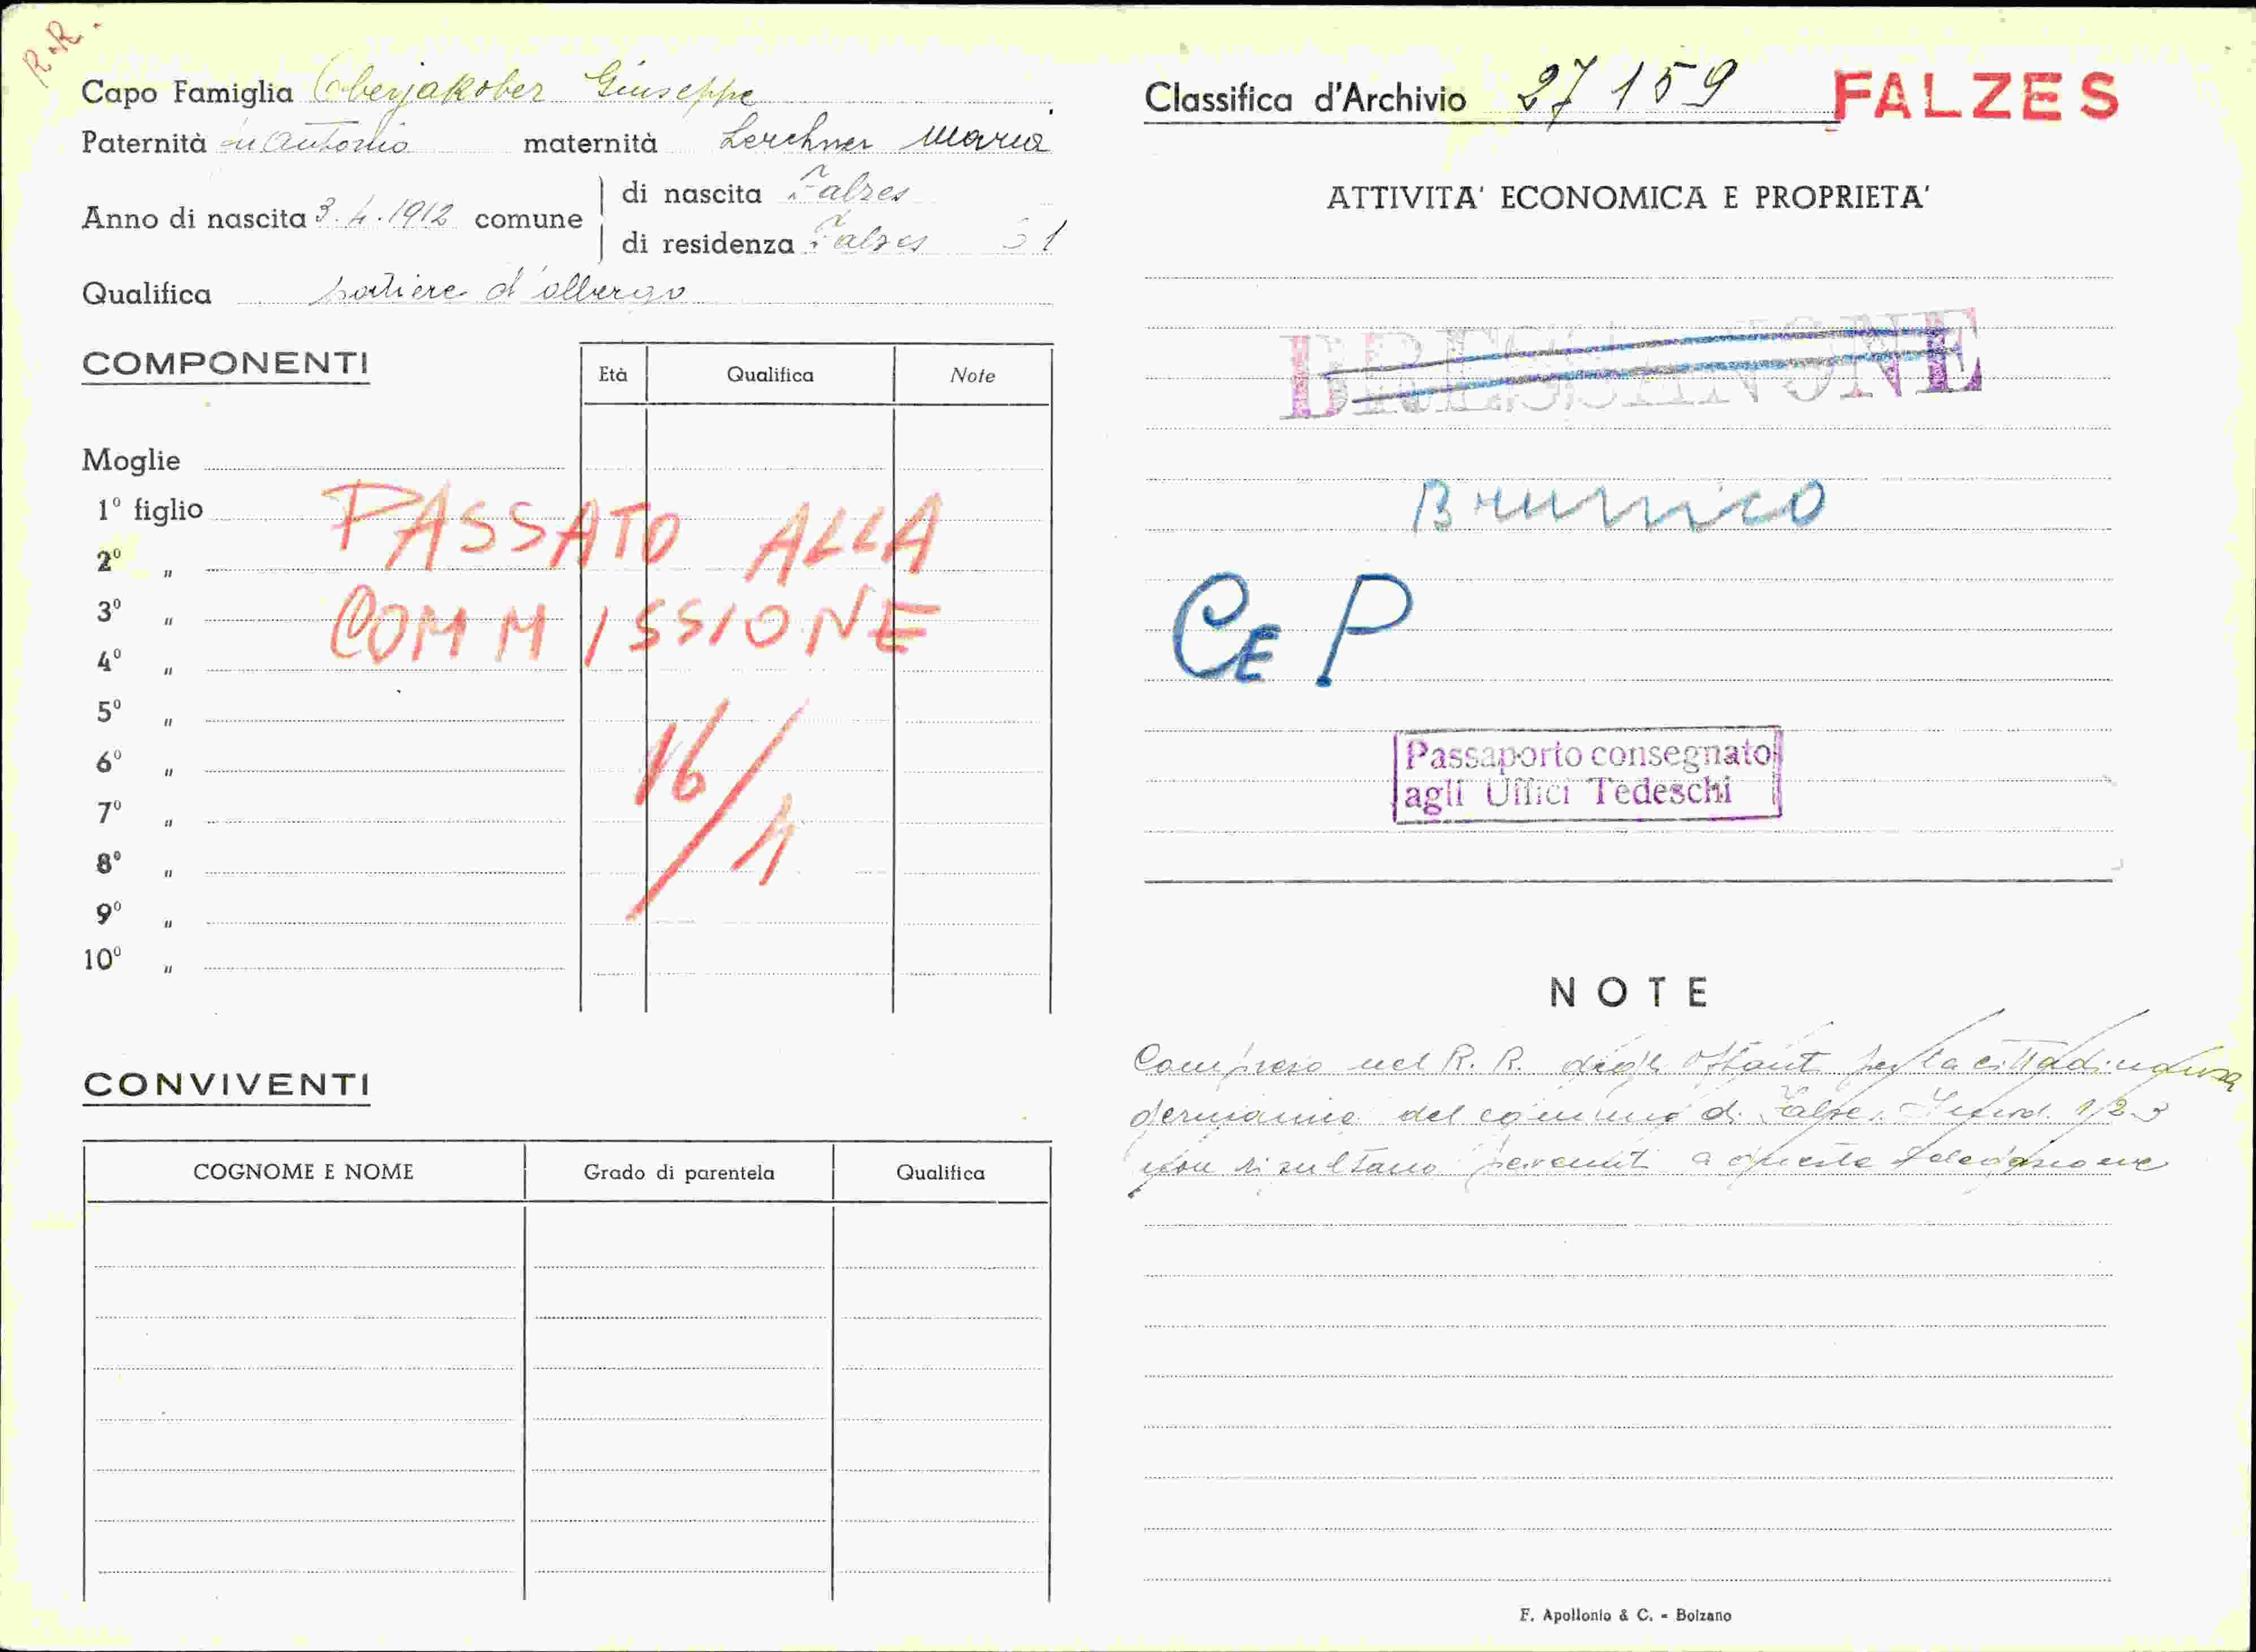 R.R.
Capo Famiglia Oberjakober Giuseppe
Paternità fu Antonio maternità Lerchner Maria
Anno di nascita 3.4.1912 comune
di nascita Falzes
di residenza Falzes 51
Qualifica portiere d'albergo
COMPONENTI
Età Qualifica Note
Moglie
1º figlio
2º "
3º "
4º "
5º "
6º "
7º "
8º "
9º "
10º "
PASSATO ALLA
COMMISSIONE
16/1
CONVIVENTI
COGNOME E NOME Grado di parentela Qualifica
Classifica d'Archivio 27159 FALZES
ATTIVITA' ECONOMICA E PROPRIETA'
BRESSANONE
Brunico
CE P
Passaporto consegnato
agli Uffici Tedeschi
NOTE
Compreso nel R. R. degli optanti per la cittadinanza
germanica del comune di Falzes. I 1/2-3
non risultano pervenuti a questa delegazione
F. Apollonio & C. - Bolzano